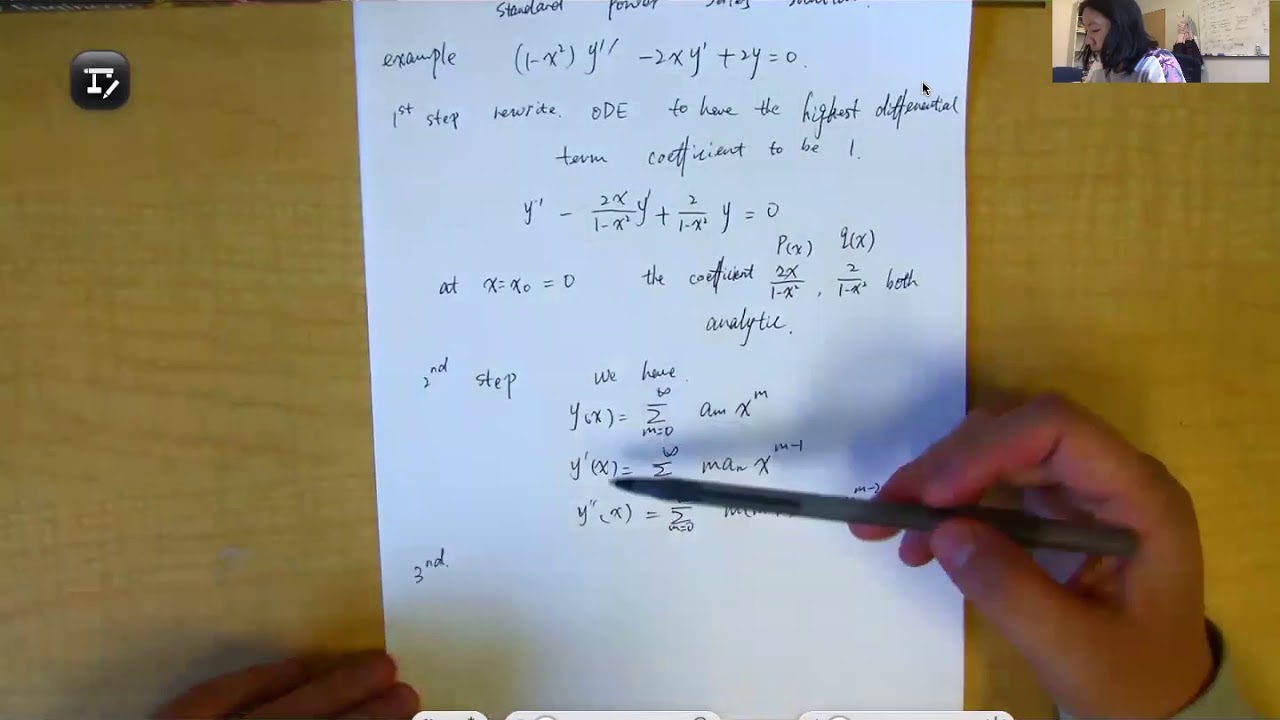 standard power series solution.
example (1-x²) y'' -2xy' +2y=0.
1st step rewrite. ODE to have the highest differential
term coefficient to be 1.
y'' - 2x/(1-x²) y' + 2/(1-x²) y = 0
P(x) q(x)
at x=x₀ = 0 the coefficient 2x/(1-x²) , 2/(1-x²) both
analytic.
2nd step we have.
y(x) = ∞Σm=0 am x^m
y'(x) = ∞Σ mam x^m-1
y''(x) = Σm=0 m-2
3nd.